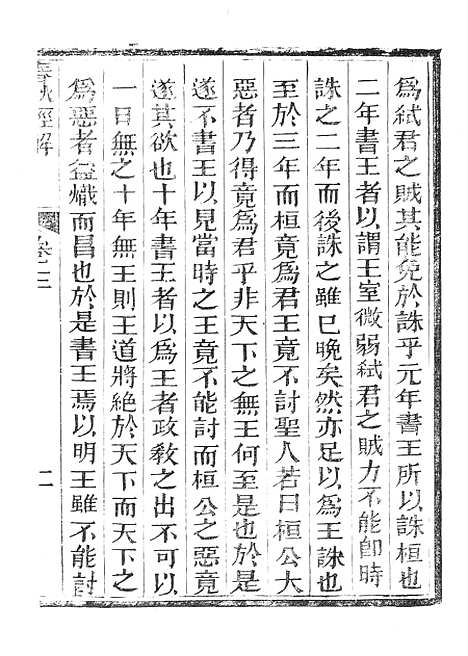 爲弒君之賊其能免於誅乎元年書王所以誅桓也
二年書王者以謂王室微弱弒君之賊力不能卽時
誅之二年而後誅之雖已晚矣然亦足以爲王誅也
至於三年而桓竟爲君王竟不討聖人若曰桓公大
惡者乃得竟爲君乎非天下之無王何至是也於是
遂不書王以見當時之王竟不能討而桓公之惡竟
遂其欲也十年書王者以爲王者政敎之出不可以
一日無之十年無王則王道將絶於天下而天下之
爲惡者益熾而昌也於是書王焉以明王雖不能討
春秋經解
卷三
二